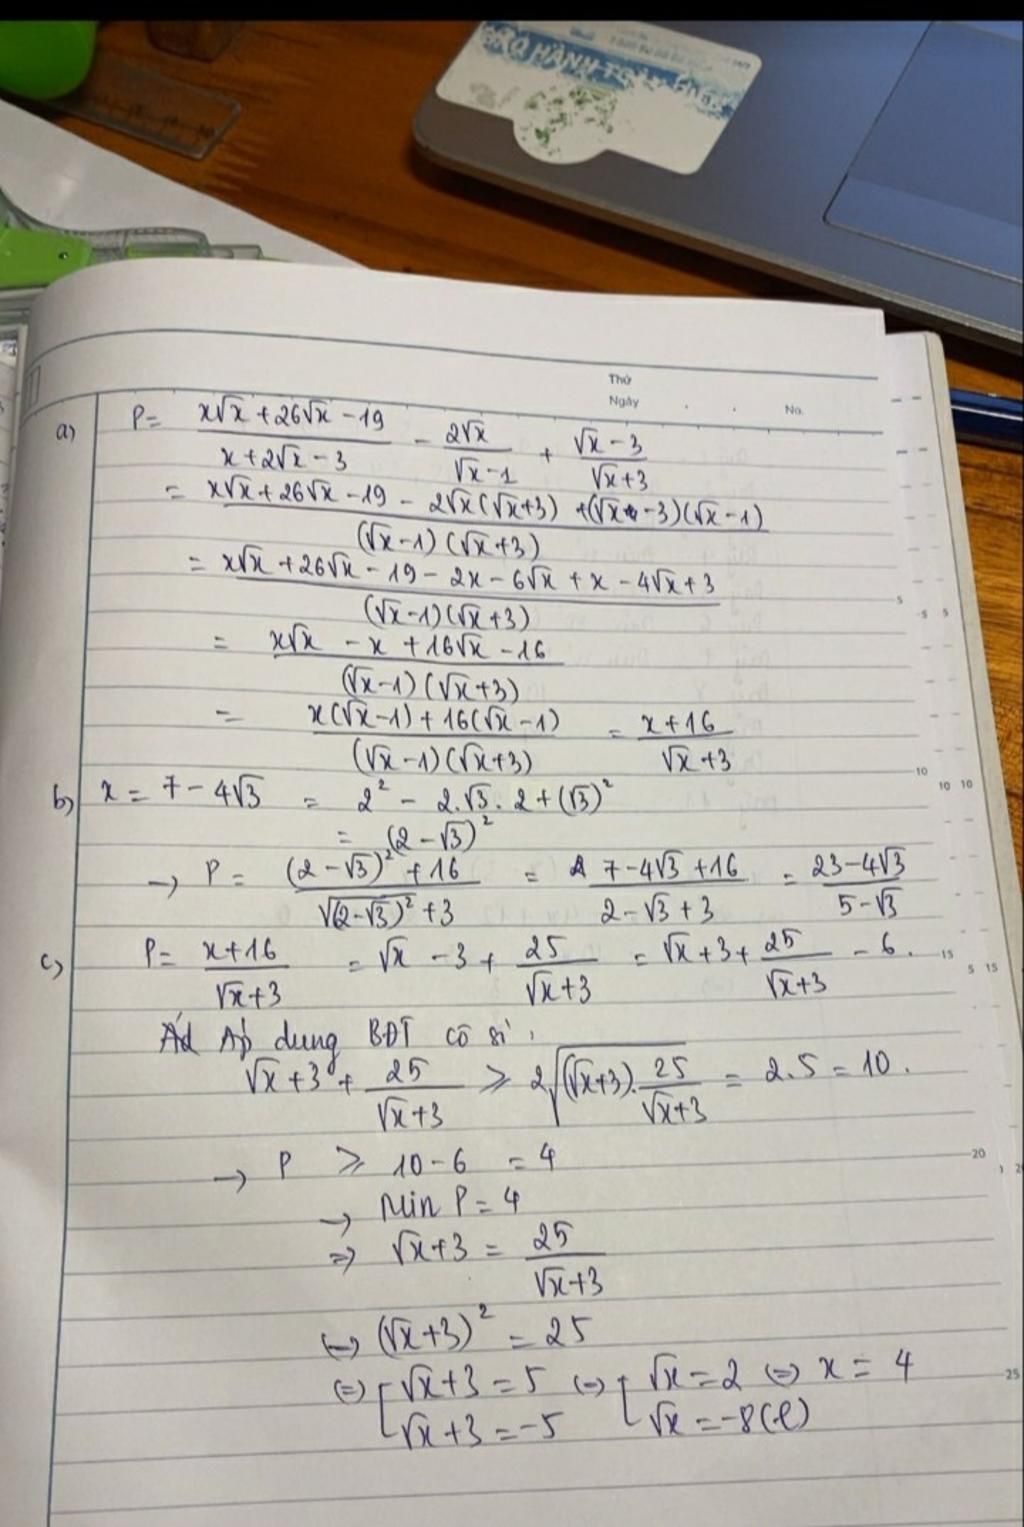 HÀNH TOÀN
Thứ
Ngày
No.
a) P = (x√x + 26√x - 19)/(x + 2√x - 3) - 2√x/(√x - 1) + (√x - 3)/(√x + 3)
= (x√x + 26√x - 19 - 2√x(√x+3) + (√x - 3)(√x - 1))/((√x - 1)(√x + 3))
= (x√x + 26√x - 19 - 2x - 6√x + x - 4√x + 3)/((√x - 1)(√x + 3))
= (x√x - x + 16√x - 16)/((√x - 1)(√x + 3))
= (x(√x - 1) + 16(√x - 1))/((√x - 1)(√x + 3)) = (x + 16)/(√x + 3)
b) x = 7 - 4√3 = 2² - 2.√3.2 + (√3)²
= (2 - √3)²
→ P = ((2 - √3)² + 16)/(√(2 - √3)² + 3) = (7 - 4√3 + 16)/(2 - √3 + 3) = (23 - 4√3)/(5 - √3)
c) P = (x + 16)/(√x + 3) = √x - 3 + 25/(√x + 3) = √x + 3 + 25/(√x + 3) - 6.
Áp dụng BĐT cô si:
√x + 3 + 25/(√x + 3) ≥ 2√((√x+3).25/(√x+3)) = 2.5 = 10.
→ P ≥ 10 - 6 = 4
→ Min P = 4
⇒ √x + 3 = 25/(√x + 3)
⇔ (√x + 3)² = 25
⇔ [ √x + 3 = 5 ⇔ [ √x = 2 ⇔ x = 4
√x + 3 = -5 √x = -8 (l)
5
5 5
10
10 10
15
5 15
20
25